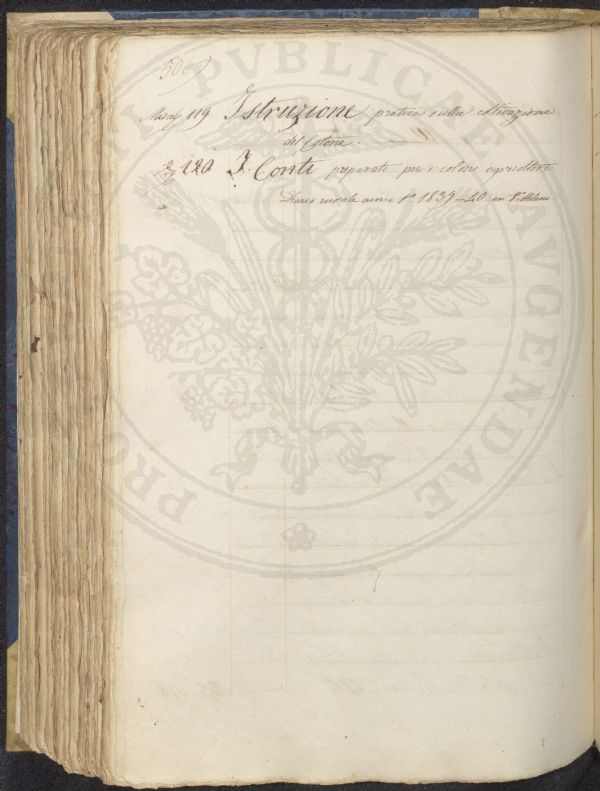 Miscel 119 Istruzione pratica sulla coltivazione
del Cotone
120 I Conti preparati per i coloni agricoltori
Diario rurale anno 1º 1839-40 in
PROSPERITATI PUBLICAE AUGENDAE